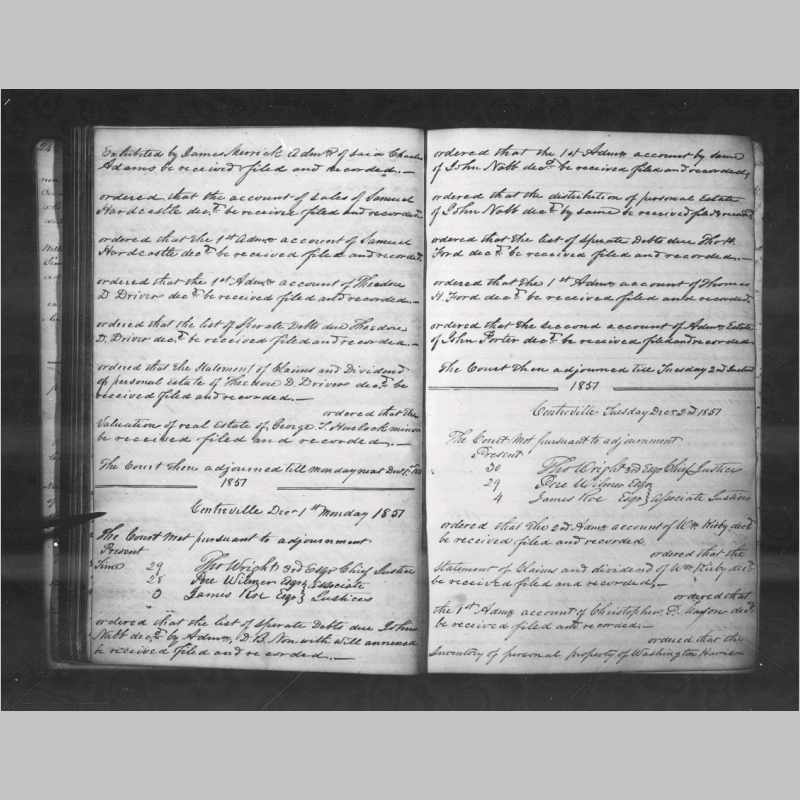 Exhibited by James Merrick Admr of said Charles
Adams be received filed and recorded.—
ordered that the account of sales of Samuel
Hardcastle decd be received filed and recorded
ordered that the 1st Admrs account of Samuel
Hardcastle decd be received filed and recorded.
ordered that the 1st Admrs account of Theodore
D Driver decd be received filed and recorded—
ordered that the list of Sperate Debts due Theodore
D. Driver decd be received filed and recorded.—
ordered that the Statement of Claims and Dividend
of personal estate of Theodore D. Driver decd be
received filed and recorded.—
ordered that the
Valuation of real Estate of George T. Hurlock minor
be received filed and recorded.—
The Court then adjourned till monday next
1851
Centreville Decr 1st Monday 1851
The Court met pursuant to adjournment
Present
Time 29 Tho Wright 3rd Esqr Chief Justice
28 Pre Wilmer Esqr } Associate
3 James Roe Esqr } Justices
ordered that the list of Sperate Debts due John
Nabb decd by Admrs, D. B. Non. with will annexed
be received filed and recorded.—
ordered that the 1st Admrs account by same
of John Nabb decd be received filed and recorded,
ordered that the distribution of personal Estate
of John Nabb decd by same be received filed &
ordered that the list of Sperate Debts due Tho H.
Ford decd be received filed and recorded.—
ordered that the 1st Admrs account of Thomas
H. Ford decd be received filed and recorded
ordered that the second account of Admrs Estate
of John Porter decd be received filed and recorded
The Court then adjourned till Tuesday 2nd
1851
Centerville Tuesday Decr 2nd 1851
The Court Met pursuant to adjournment
Present
30 Tho Wright 3rd Esqr Chief Justice
29 Pre Wilmer Esqr
4 James Roe Esqr } Associate Justices
ordered that the 2d Admrs account of Wm Kirby decd
be received filed and recorded
ordered that the
Statement of Claims and dividend of Wm Kirby decd
be received filed and recorded,—
ordered that
the 1st Admrs account of Christopher P. Mason decd
be received filed and recorded.—
ordered that the
Inventory of personal property of Washington Harrison